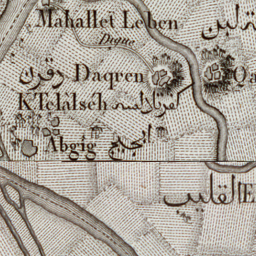 Mahallet Leben
لبن
Digue
دقرن Daqren
Qa
K. Telâlséh
Abgig ابجيج
القليب El